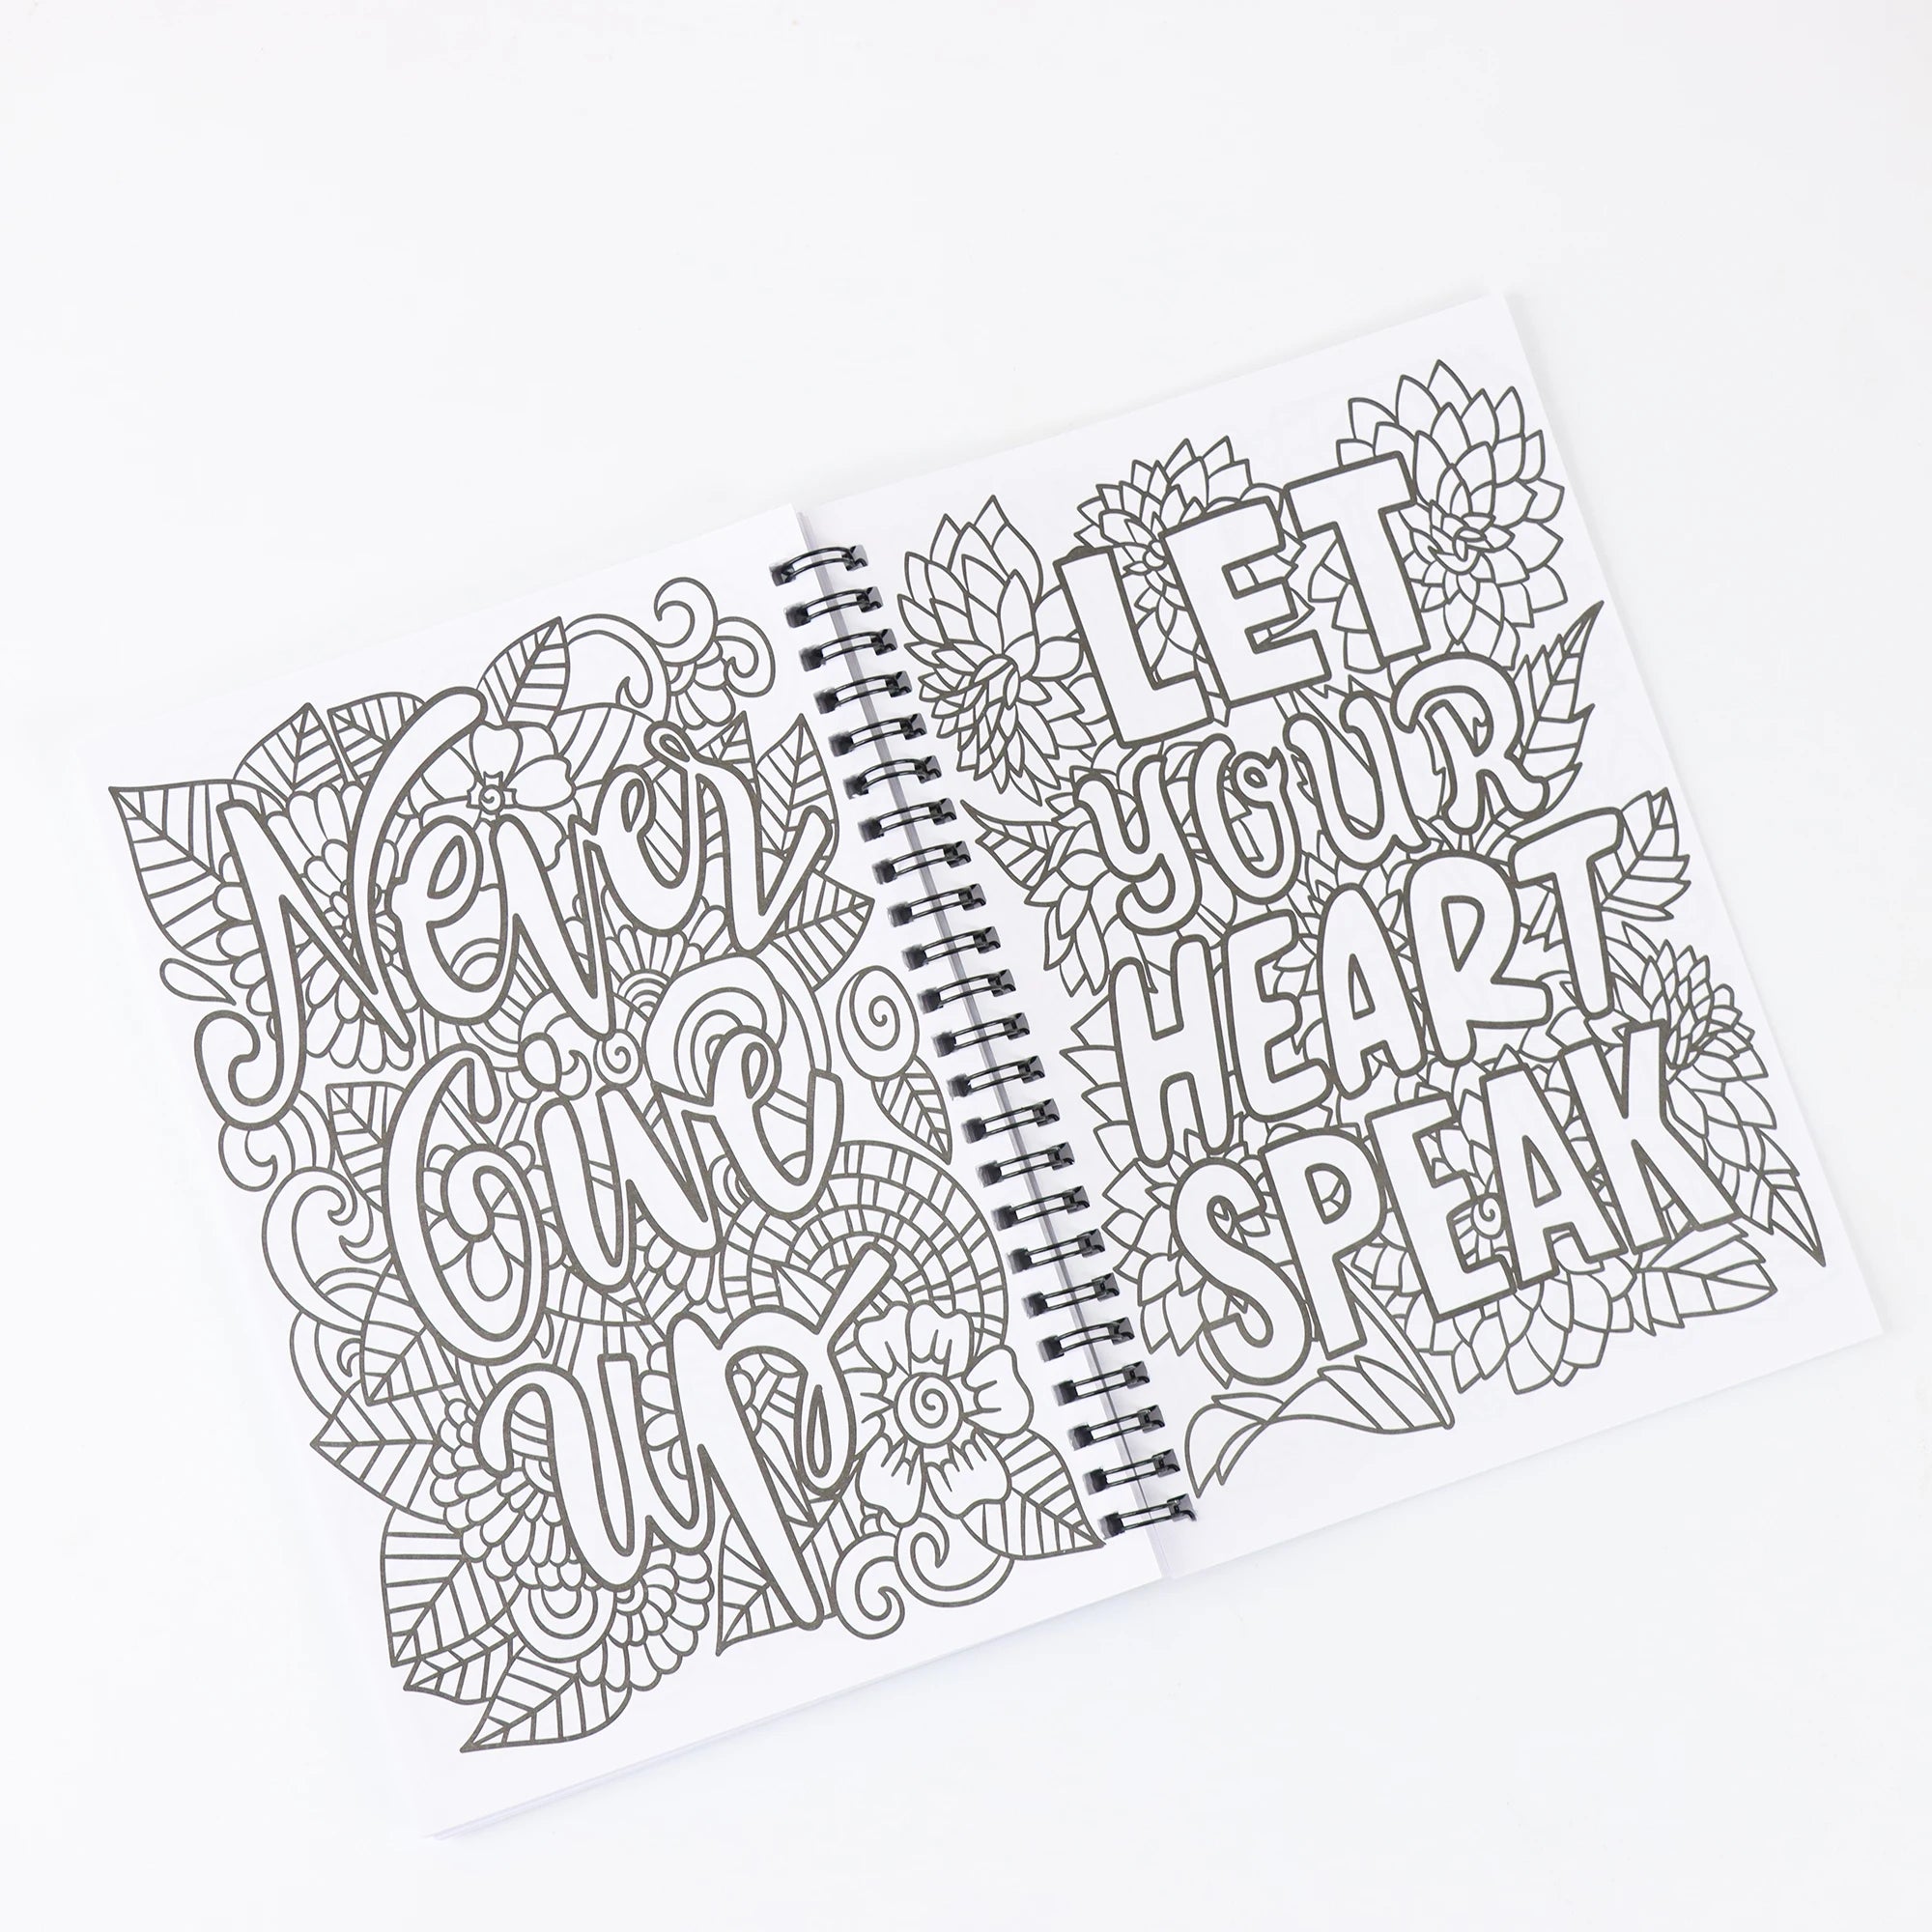 Never
Give
up
LET
YOUR
HEART
SPEAK